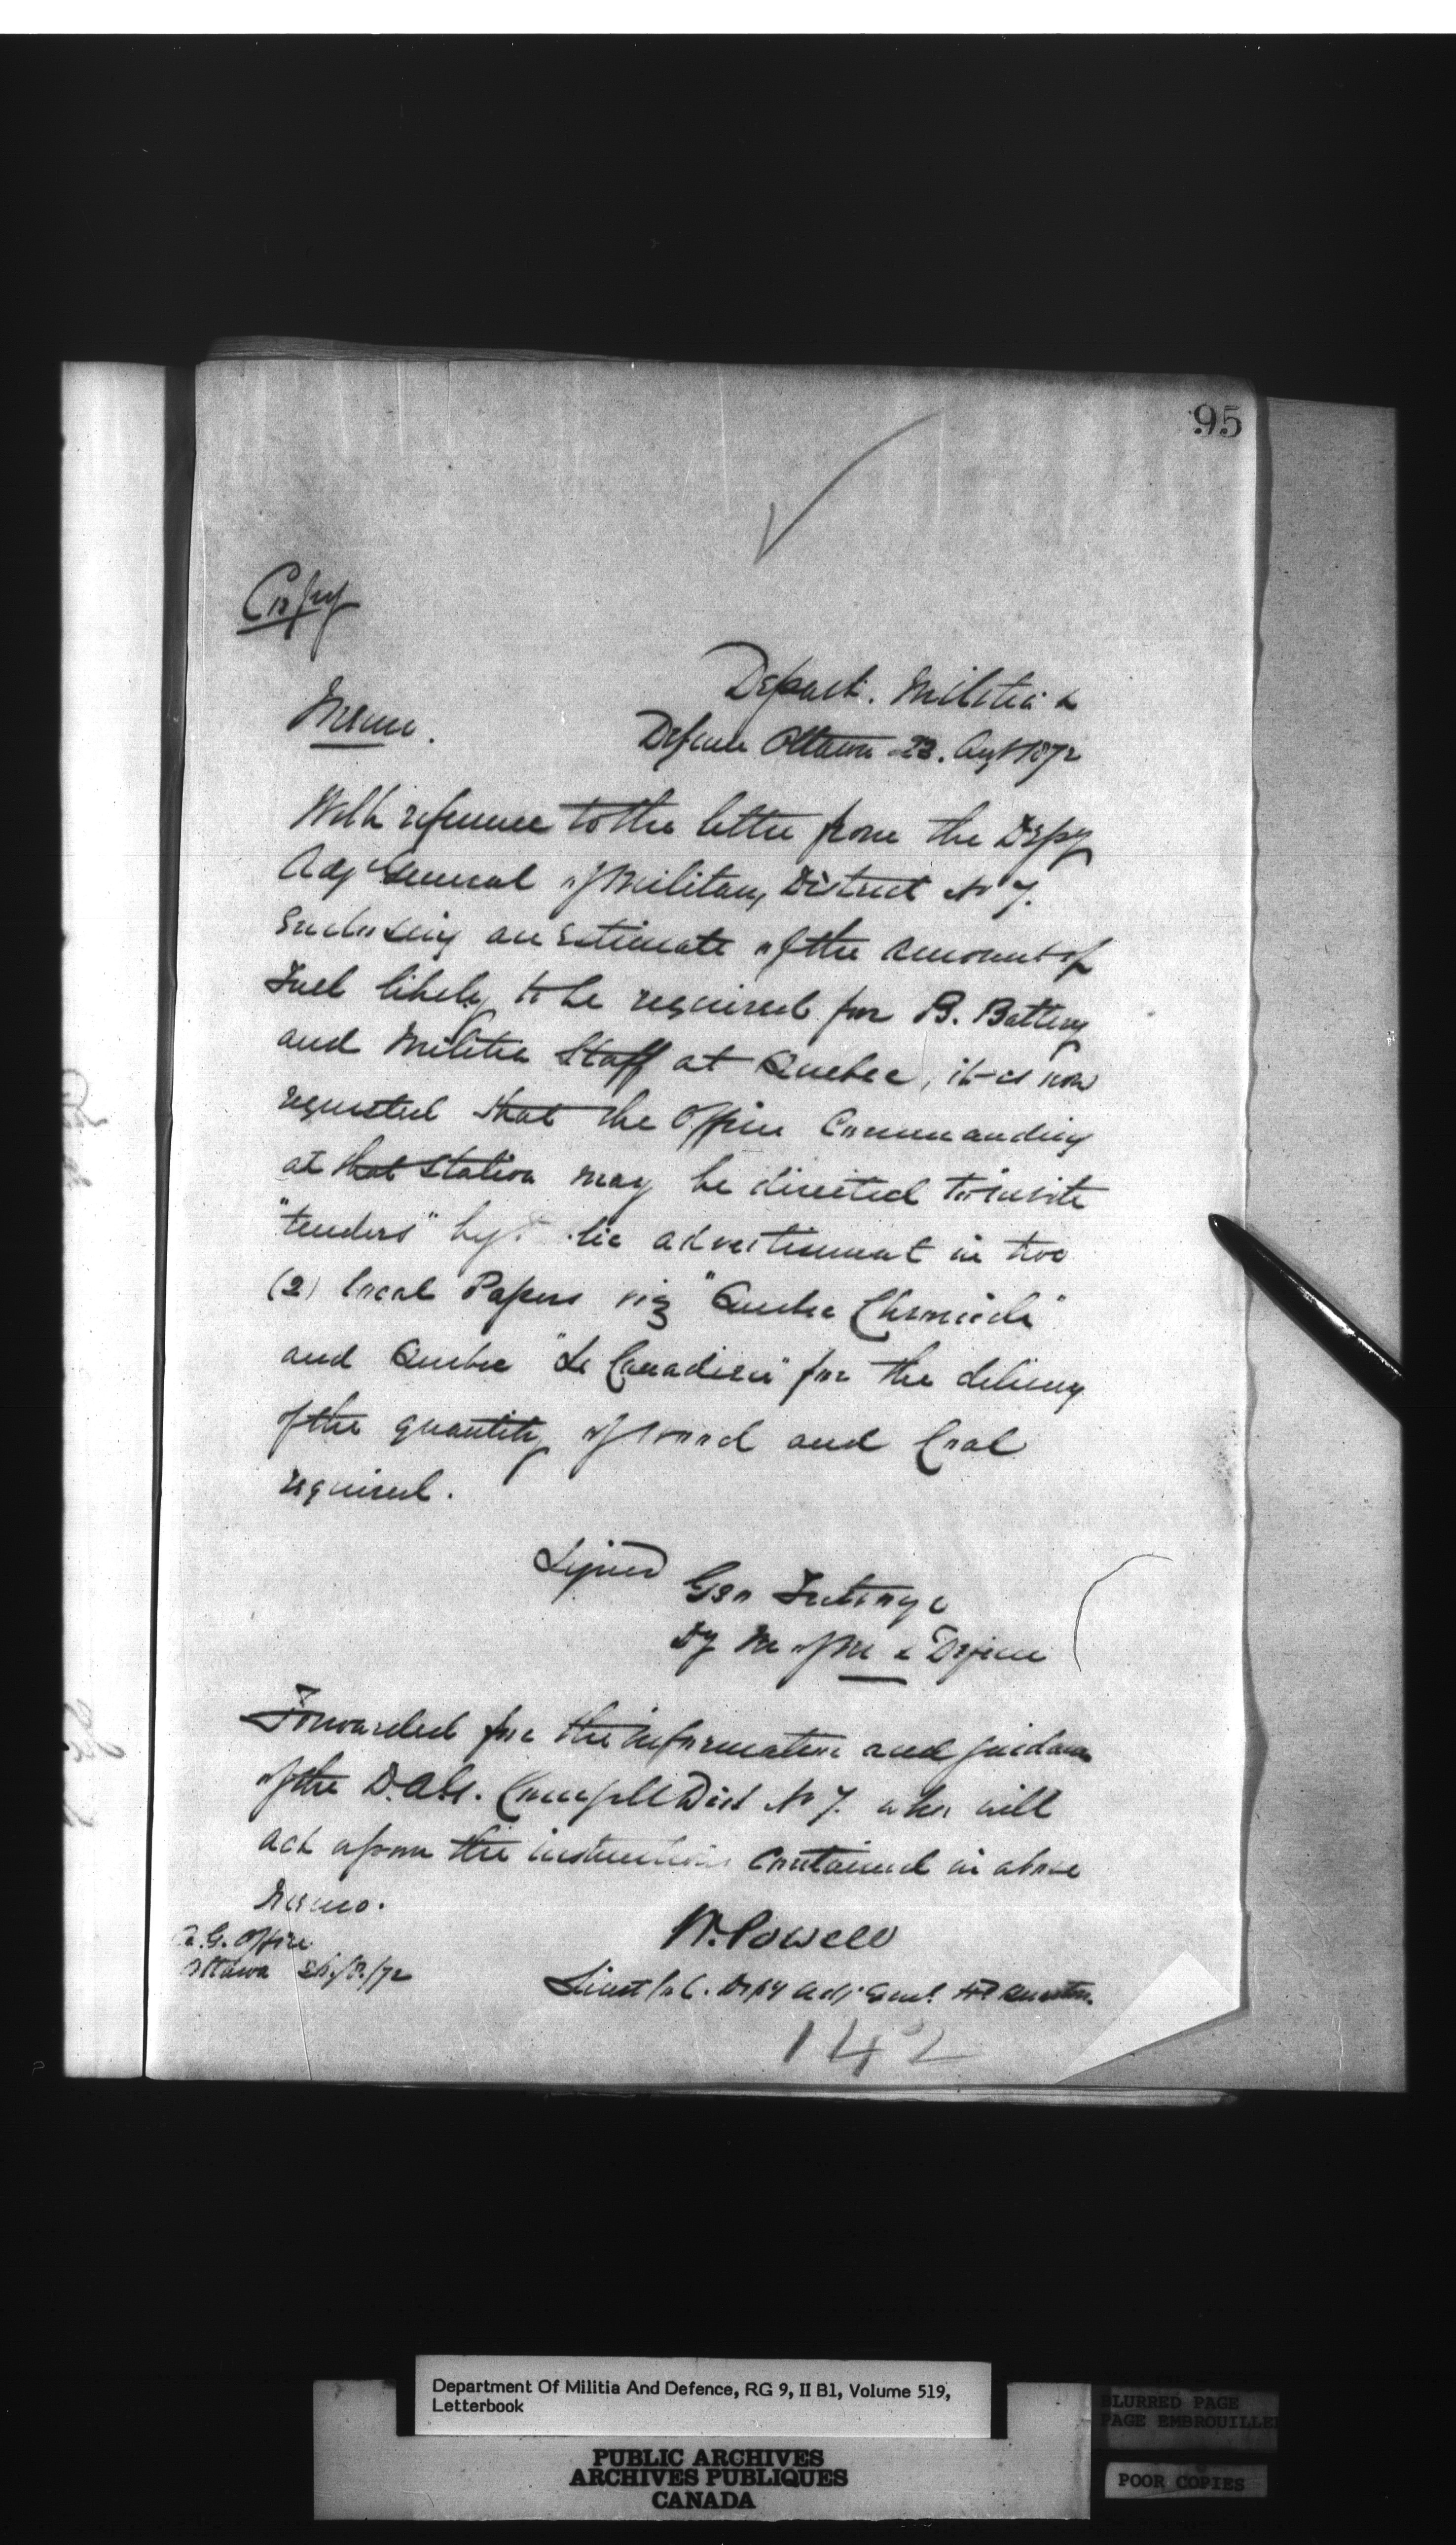 95
Copy
Depart. Militia &
Memo.
Defence Ottawa 23. Augt 1872
With reference to the letter from the Depy
Adj General of Military District No 7.
Enclosing an Estimate of the amount of
Fuel likely to be required for B. Battery
and Militia Staff at Quebec, it is now
requested that the Officer Commanding
at that Station may be directed to invite
"tenders" by lic advertisement in two
(2) local Papers viz "Quebec Chronicle"
and Quebec "Le Canadien" for the delivery
of the quantity of wood and Coal
required.
Signed
Geo Futvoye
Dy M of M & Defence
Forwarded for the information and guidance
of the D.A.G. Comg Mil Dist No 7. who will
act upon the instructions Contained in above
Memo.
A.G. Office
Ottawa /72
W. Powell
Lieut Col. Depy Adj Genl Hd Quarters.
142
Department Of Militia And Defence, RG 9, II B1, Volume 519,
Letterbook
BLURRED PAGE
PAGE EMBROUILLE
PUBLIC ARCHIVES
ARCHIVES PUBLIQUES
CANADA
POOR COPIES